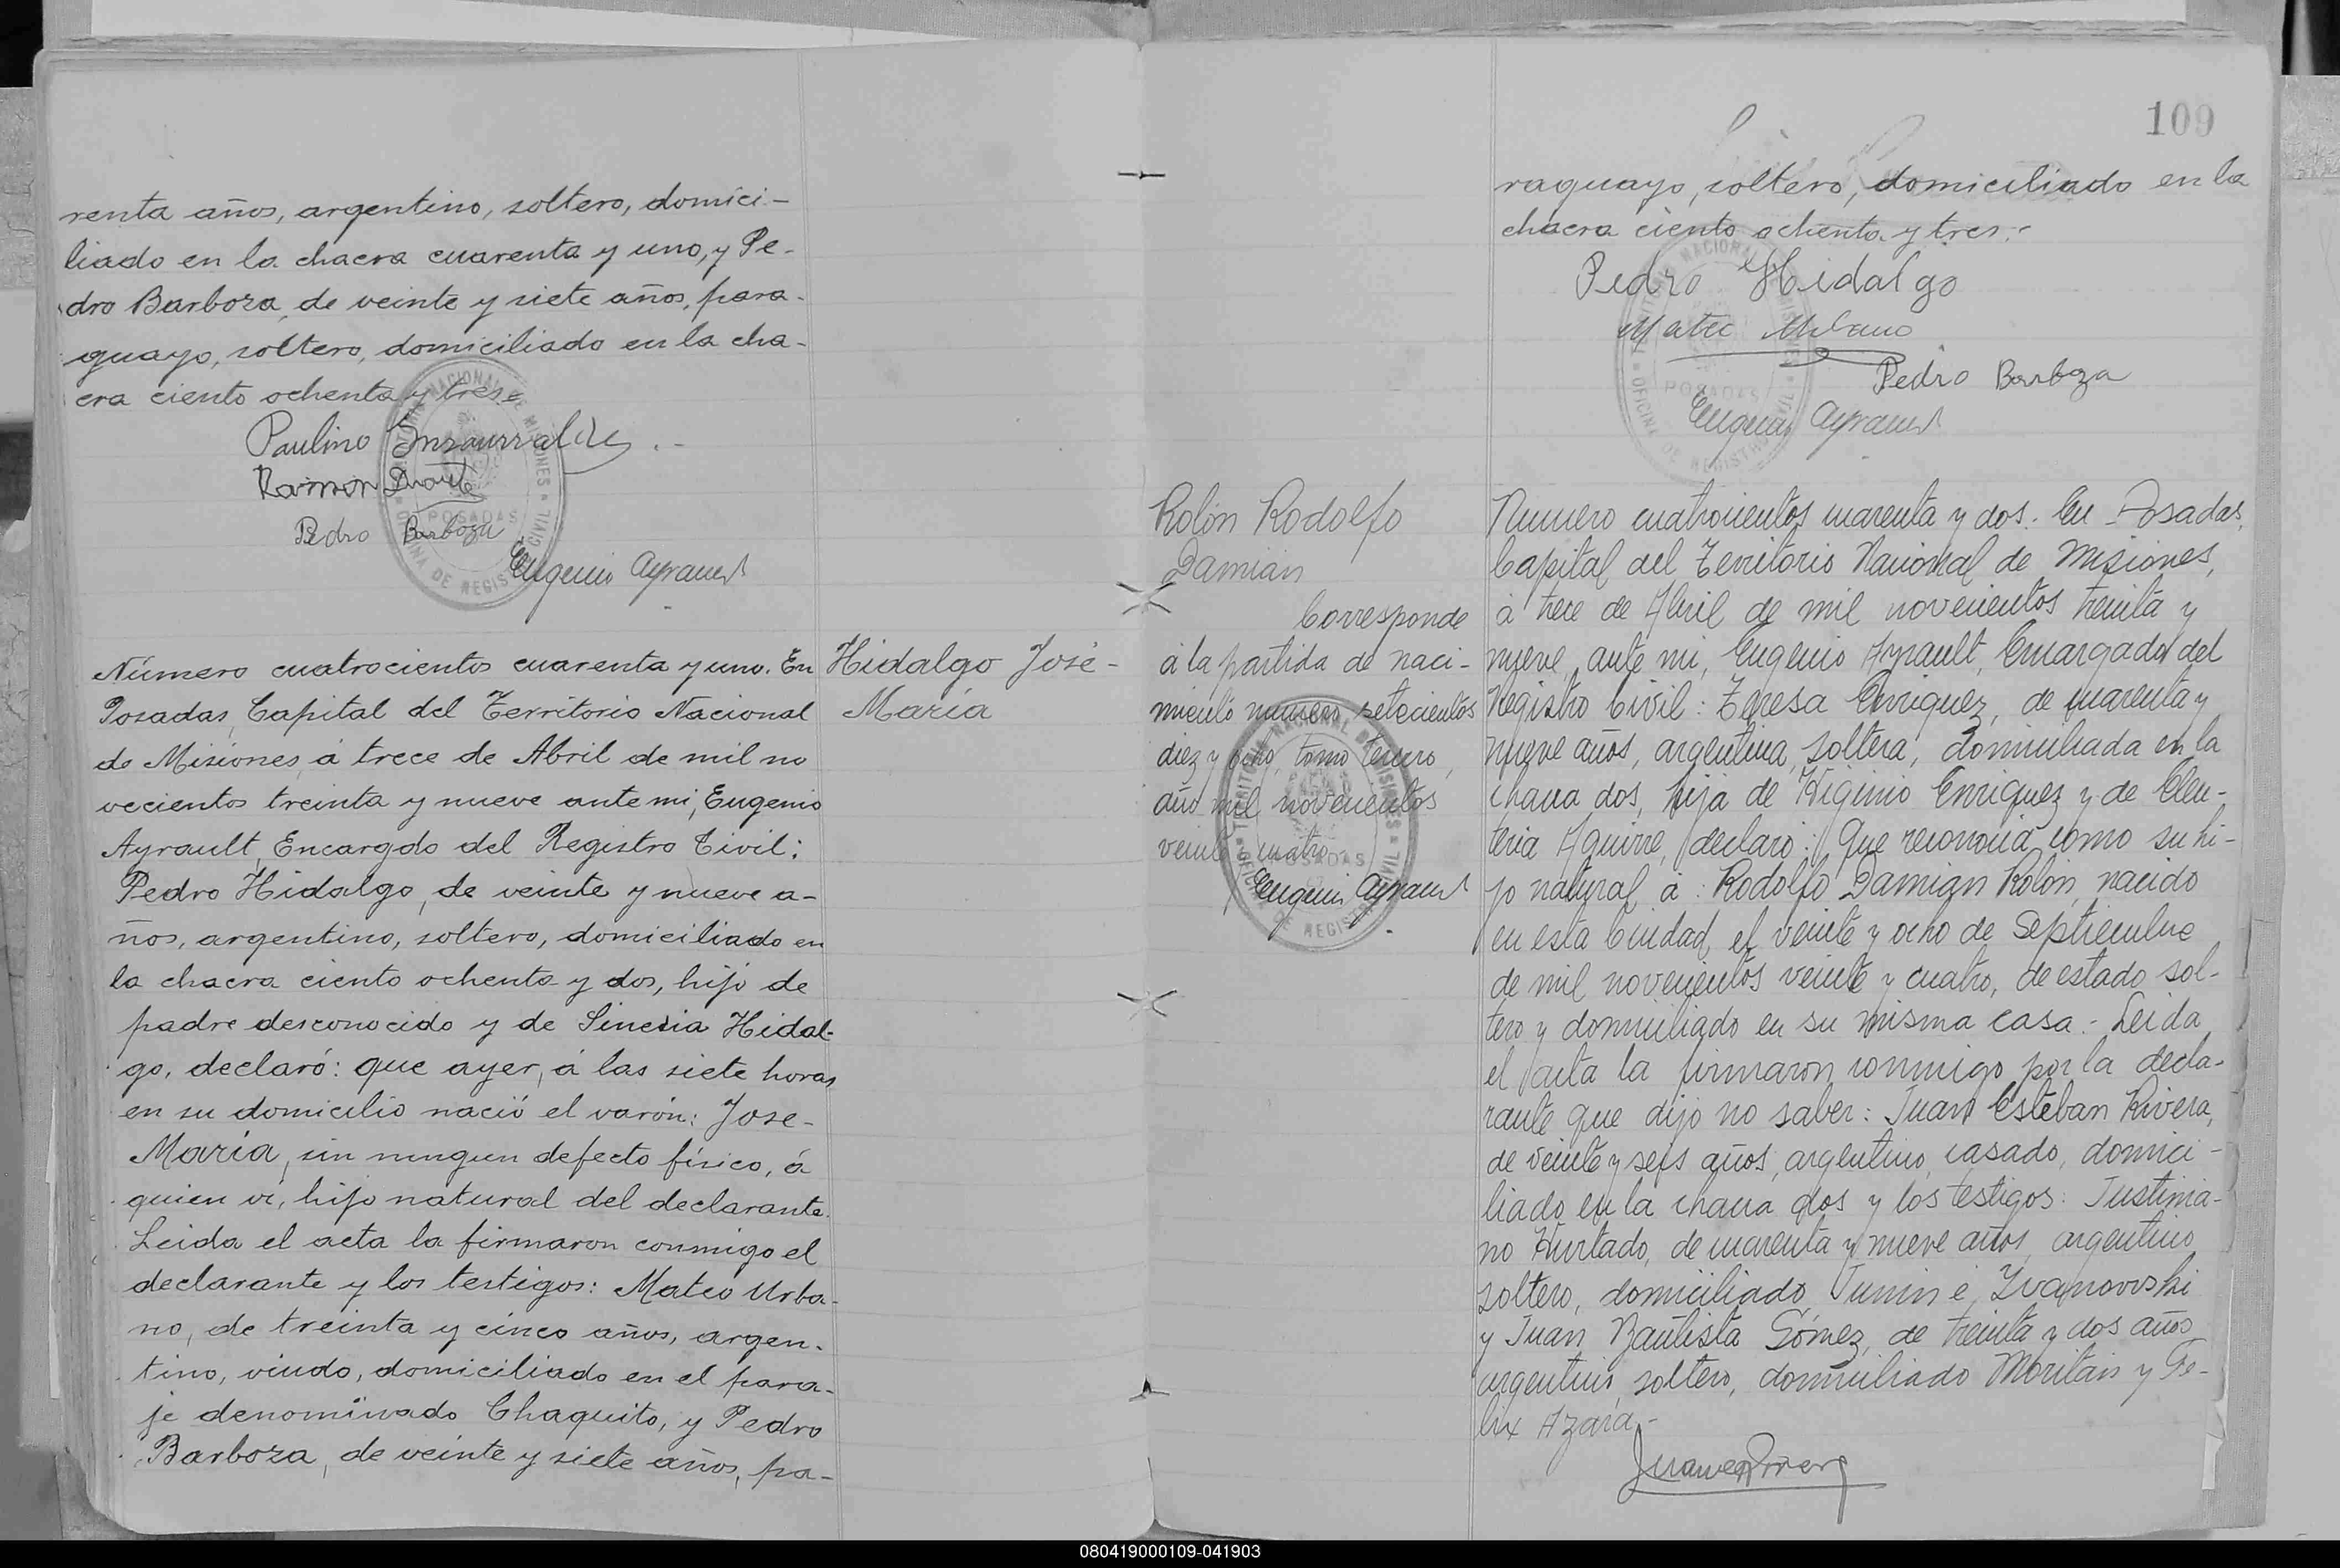 renta años, argentino, soltero, domici-
liado en la chacra cuarenta y uno, y Pe-
dro Barboza, de veinte y siete años, para-
guayo, soltero, domiciliado en la cha-
cra ciento ochenta y tres.
Paulino Insaurralde
Ramón Duarte
Pedro Barboza
Eugenio Ayrault
Número cuatrocientos cuarenta y uno. En
Posadas, Capital del Territorio Nacional
de Misiones, á trece de Abril de mil no
vecientos treinta y nueve ante mi, Eugenio
Ayrault, Encargdo del Registro Civil:
Pedro Hidalgo, de veinte y nueve a-
ños, argentino, soltero, domiciliado en
la chacra ciento ochenta y dos, hijo de
padre desconocido y de Sinesia Hidal-
go, declaró: que ayer, á las siete horas
en su domicilio nació el varón: Jose-
María, sin ningun defecto físico, á
quien ví, hijo natural del declarante.
Leida el acta la firmaron conmigo el
declarante y los testigos: Mateo Urba-
no, de treinta y cinco años, argen-
tino, viudo, domiciliado en el para-
je denominado Chaquito, y Pedro
Barboza, de veinte y siete años, pa-
Hidalgo José-
María
109
raguayo, soltero, domiciliado en la
chacra ciento ochenta y tres.-
Pedro Hidalgo
Mateo Urbano
Pedro Barboza
Eugenio Ayrault
Rolón Rodolfo
Damián
Corresponde
á la partida de naci-
miento numero setecientos
diez y ocho, tomo tercero,
año mil novecientos
veinte cuatro.-
Eugenio Ayrault
Numero cuatrocientos cuarenta y dos. En Posadas,
Capital del Territorio Nacional de Misiones,
á trece de Abril de mil novecientos treinta y
nueve, ante mi, Eugenio Ayrault, Encargado del
Registro Civil: Teresa Enriquez, de cuarenta y
nueve años, argentina, soltera, domiciliada en la
chacra dos, hija de Higinio Enriquez y de Eleu-
teria Aguirre, declaró: Que reconocía como su hi-
jo natural á: Rodolfo Damián Rolón, nacido
en esta Ciudad, el veinte y ocho de Septiembre
de mil novecientos veinte y cuatro, de estado sol-
tero y domiciliado en su misma casa.- Leida
el acta la firmaron conmigo por la decla-
rante que dijo no saber: Juan Esteban Rivera,
de veinte y seis años, argentino, casado, domici-
liado en la chacra dos y los testigos: Justinia-
no Hurtado, de cuarenta y nueve años, argentino
soltero, domiciliado Junin é Ivanovoski
y Juan Bautista Gómez, de treinta y dos años
argentino, soltero, domiciliado Moritán y Fe-
lix Azara.-
080419000109-041903